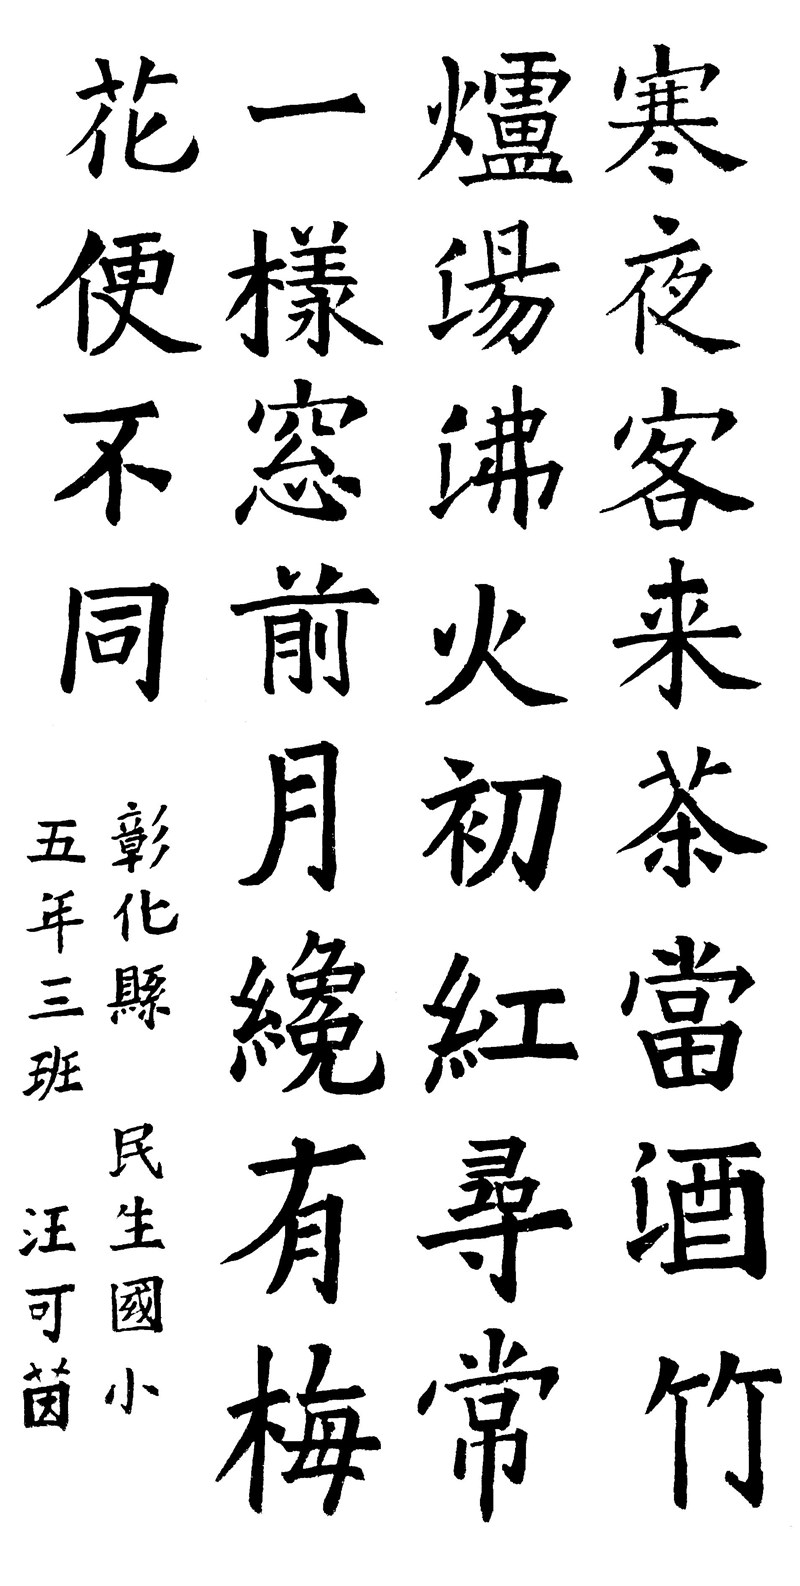 寒夜客来茶當酒竹
爐湯沸火初紅尋常
一樣窓前月纔有梅
花便不同
彰化縣 民生國小
五年三班 汪可茵